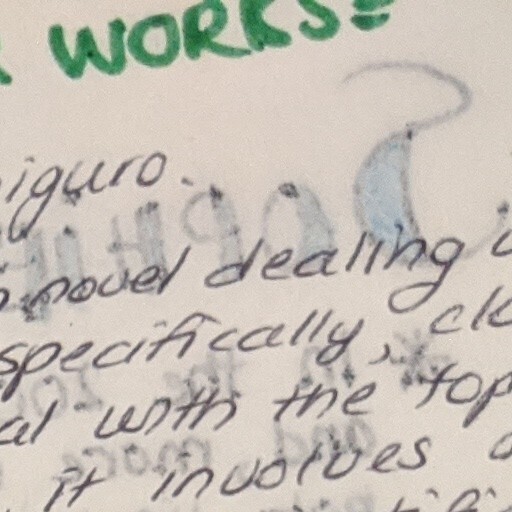 WORKS=
iguro.
novel dealing
specifically,
al with the top
it involves